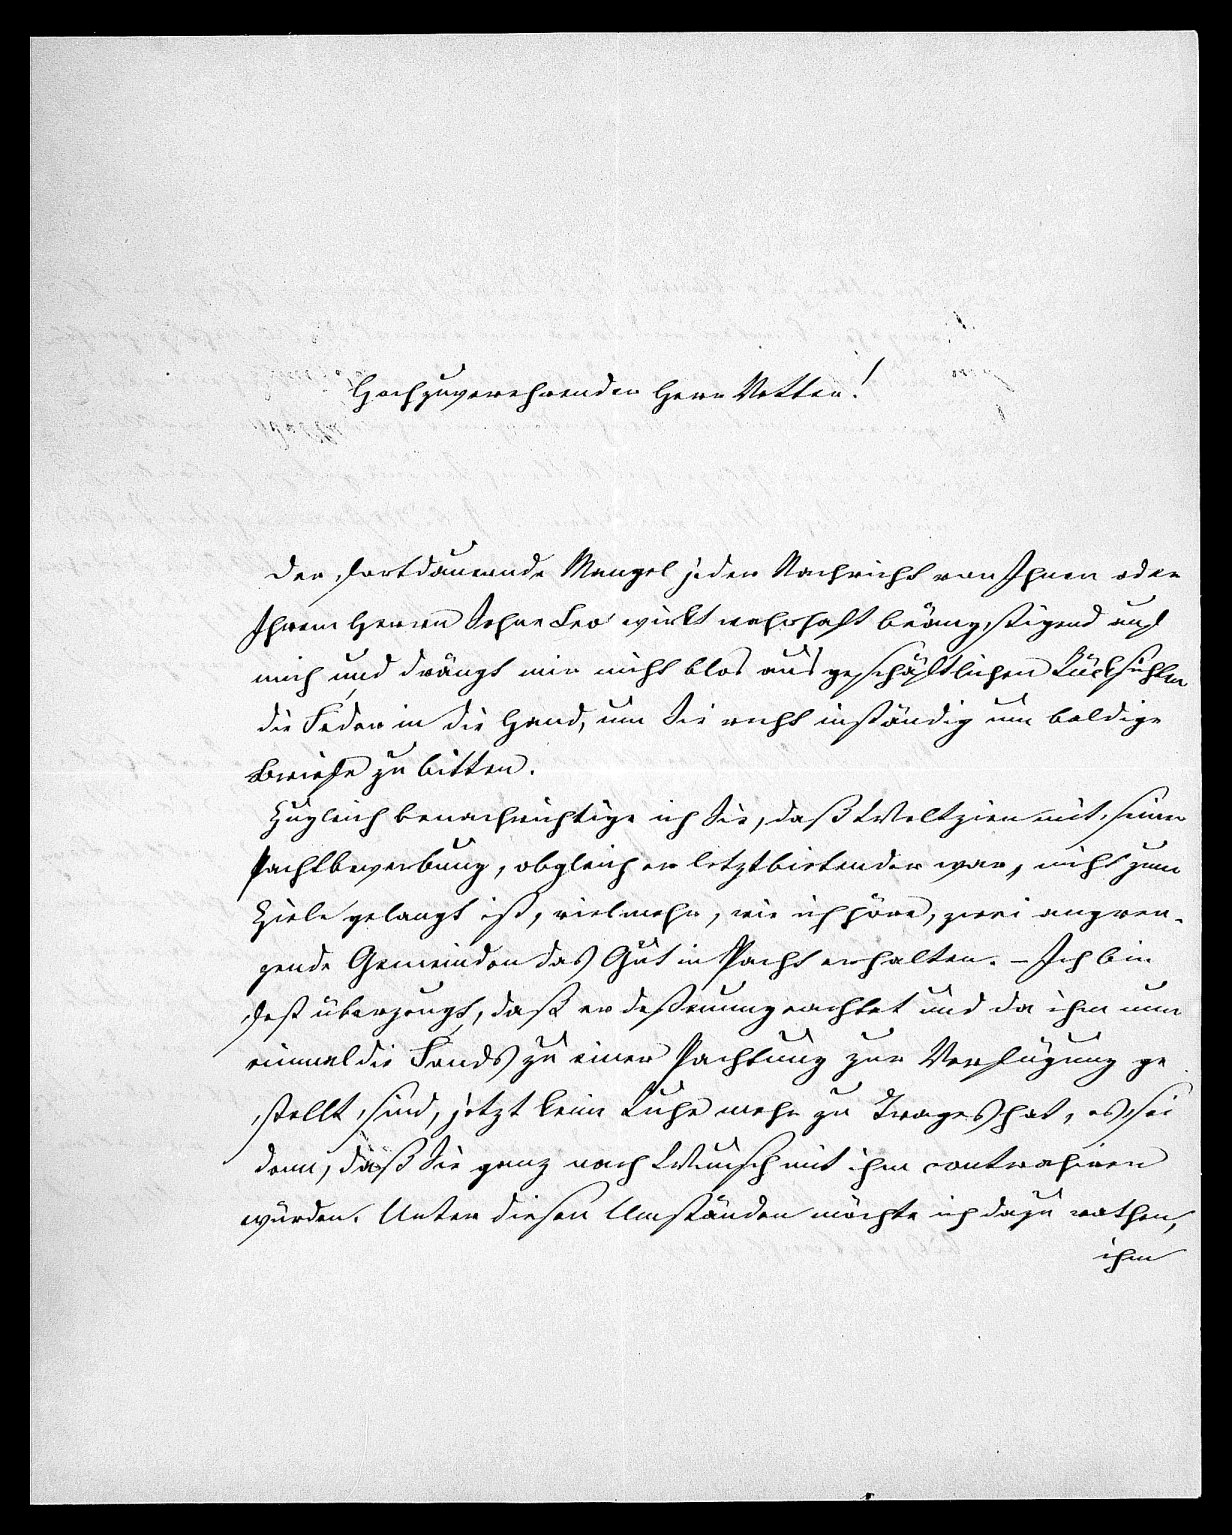 Hochzuverehrender Herr Vetter!
Der fortdauernde Mangel jeder Nachricht von Ihnen oder
Ihrem Herrn Sohne Leo wirkt wahrhaft beängstigend auf
mich und drängt mir nicht blos aus geschäftlichen Rücksichten
die Feder in die Hand, um Sie recht inständig um baldige
Briefe zu bitten.
Zugleich benachrichtige ich Sie, daß Weltzien mit seiner
Pachtbewerbung, obgleich er letztbietender war, nicht zum
Ziele gelangt ist, vielmehr, wie ich höre, zwei angren-
zende Gemeinden das Gut in Pacht erhalten. – Ich bin
fest überzeugt, daß er deßenungeachtet und da ihm nun
einmal die Fonds zu einer Pachtung zur Verfügung ge
stellt sind, jetzt keine Ruhe mehr zu Trages hat, es sei
denn, daß Sie ganz nach Wunsch mit ihm contrahiren
würden. Unter diesen Umständen möchte ich dazu rathen,
ihm